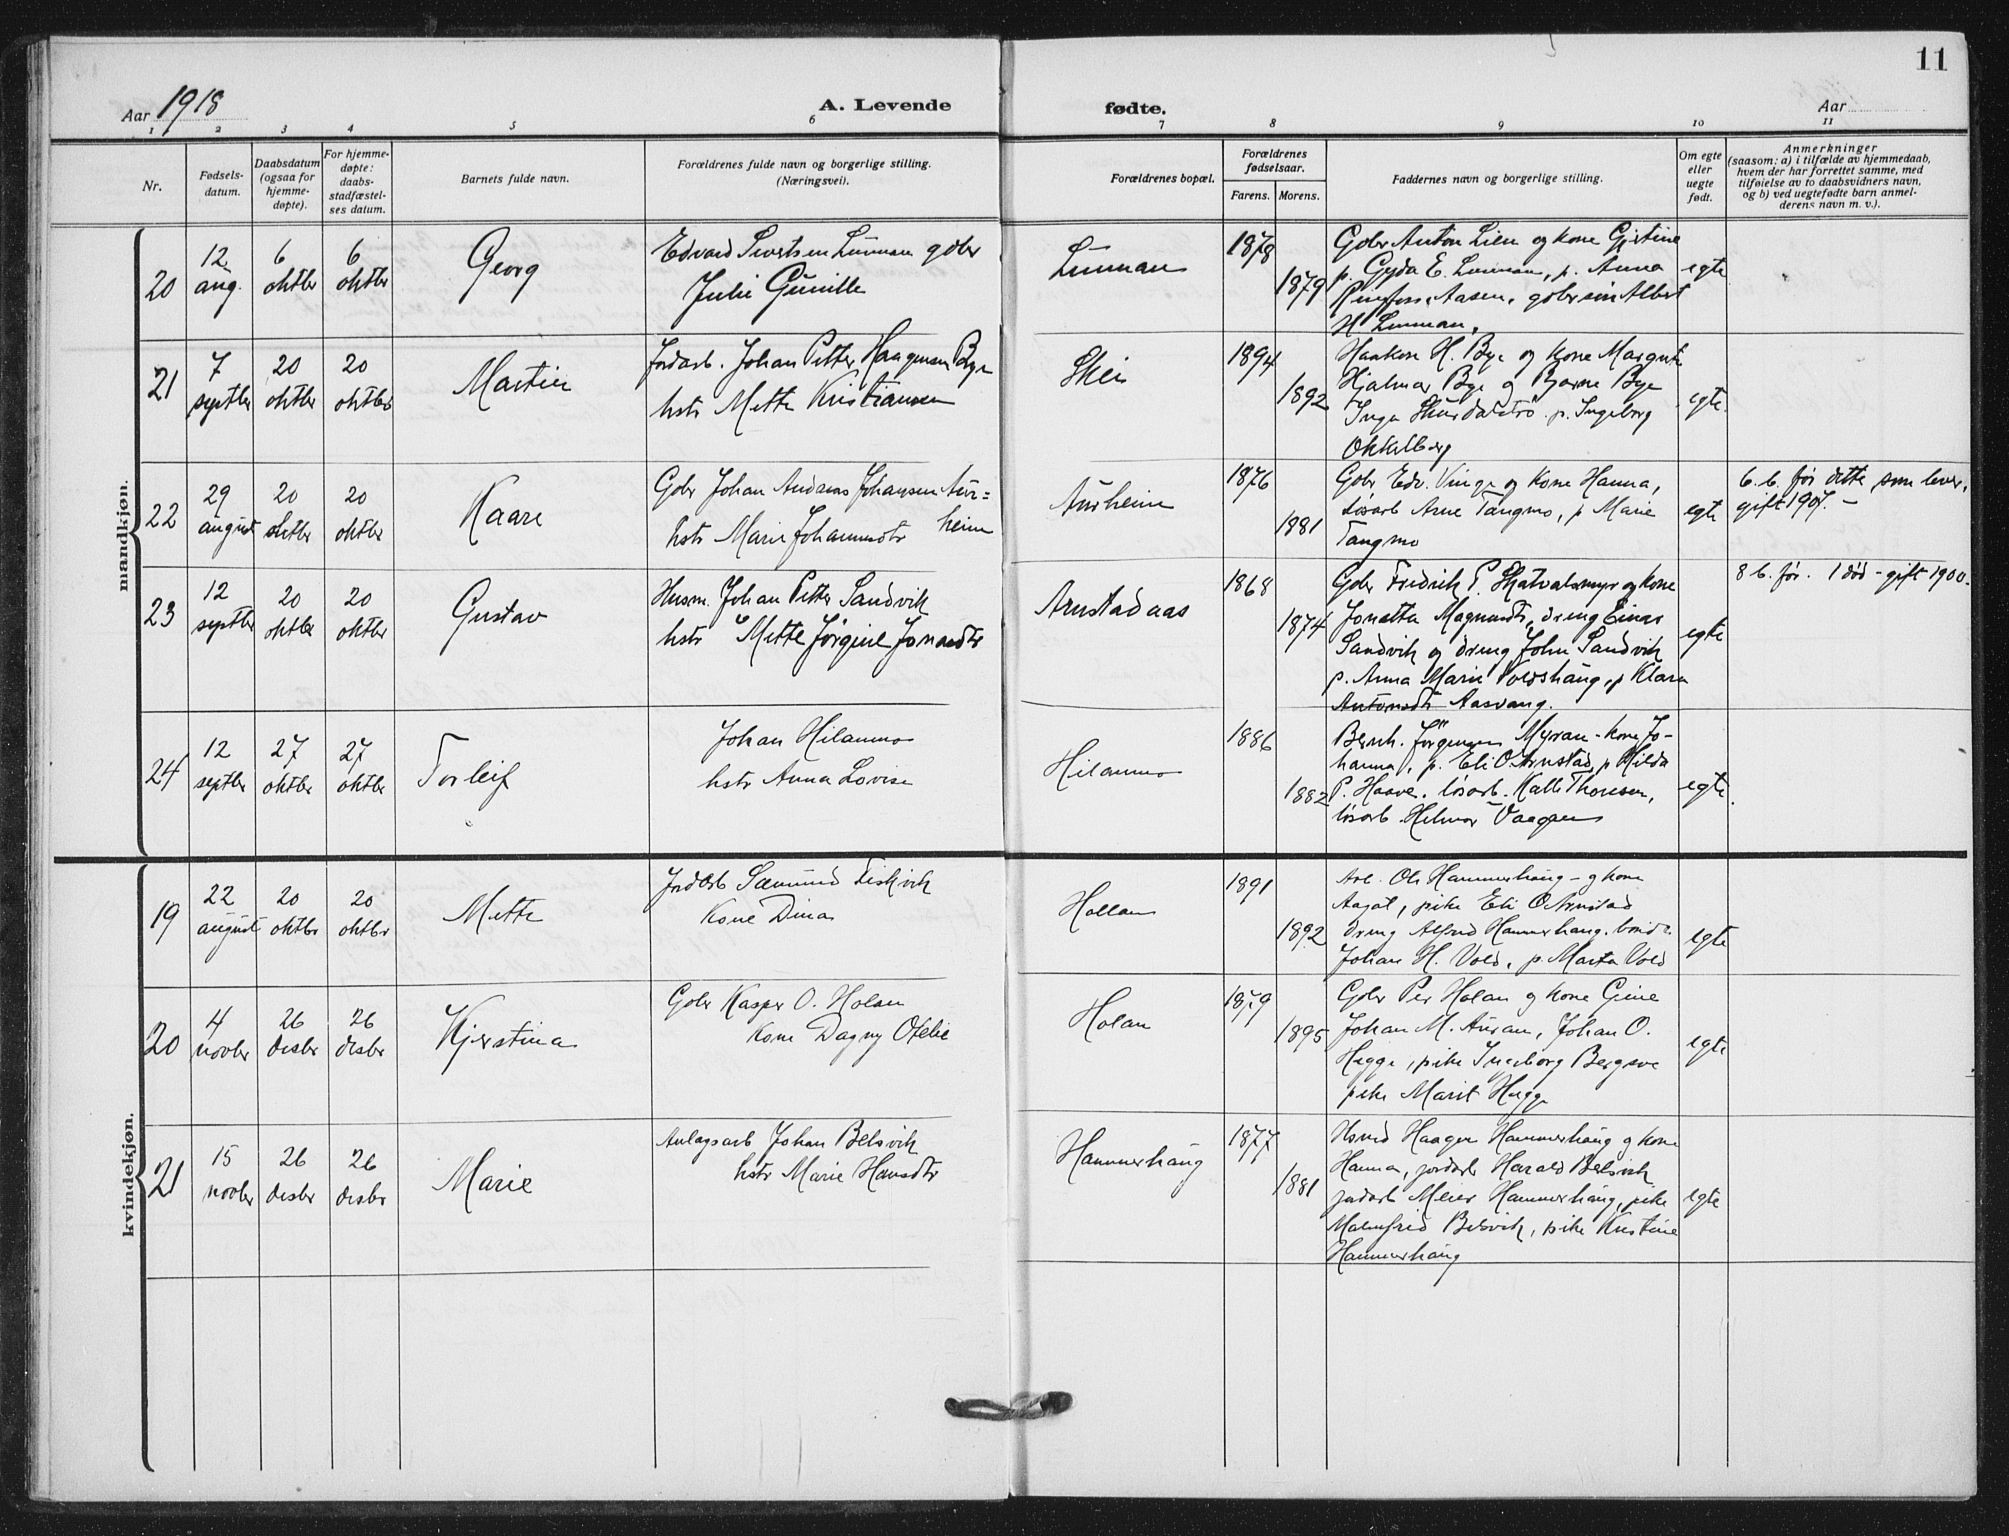 11
Aar 1918
A. Levende
fødte.
Aar
1 2 3 4 5 6 7 8 9 10 11
Nr.
Fødsels-
datum.
Daabsdatum
(ogsaa for
hjemme-
døpte).
For hjemme-
døpte:
daabs-
stadfæstel-
ses datum.
Barnets fulde navn.
Forældrenes fulde navn og borgerlige stilling.
(Næringsvei).
Forældrenes bopæl.
Forældrenes
fødselsaar.
Farens. Morens.
Faddernes navn og borgerlige stilling.
Om egte
eller
uegte
født.
Anmerkninger
(saasom: a) i tilfælde av hjemmedaab,
hvem der har forrettet samme, med
tilføielse av to daabsvidners navn,
og b) ved uegtefødte barn anmel-
derens navn m. v.).
mandkjøn.
20
12
aug.
6
oktbr
6
oktbr
Georg
Edvard Sivertsen Lunnan gbr
Julie Gunille
Lunnan
1878
1879
Gbr Anton Lien og kone Gjertine
p. Gyda E. Lunnan, p. Anna
Aasen, gbrsøn Albert
H Lunnan.
egte
21
7
septbr
20
oktbr
20
oktbr
Martin
Jordarb. Johan Petter Haagensen Bye
hstr Mette Kristiansen
Skei
1894
1892
Haakon H. Bye og kone Margrete
Hjalmar Bye og Bjarne Bye
Inga p. Ingeborg
Okkelberg
egte
22
29
august
20
oktbr
20
oktbr
Kaare
Gbr Johan Andreas Johansen Aur=
hstr Marie Johannesdtr heim
Aurheim
1876
1881
Gbr Edv. Vinge og kone Hanna,
løsarb Arne Tangmo, p Marie
Tangmo
egte
6 b. før dette som lever,
gift 1907. -
23
12
septbr
20
oktbr
20
oktbr
Gustav
Husm. Johan Petter Sandvik
hstr Mette Jørgine Jonasdtr
Arnstadaas
1868
1874
Gbr Fredrik P. Skatvalsmyr og kone
Jonetta Magnusdtr, dreng Einar
Sandvik og dreng John Sandvik
p. Anna Marie Voldshaug, p Klara
Antonsdtr Aasvang.
egte
8 b. før. 1 død - gift 1900.
24
12
septbr
27
oktbr
27
oktbr
Torleif
Johan Hilanmo
hstr Anna Lovise
Hilanmo
1886
1882
Bernh. Jørgensen Myran - kone Jo-
hanna, p. Eli O Arnstad, p Hilda
P. Haave, løsarb. Kalle Thoresen,
løsarb Helmer Vaagen
egte.
kvindekjøn.
19
22
august
20
oktbr
20
oktbr
Mette
Jordarb Sæmund Fiskvik
Kone Dina
Hollan
1891
1892
Arb. Ole Hammerhaug - og kone
Aagot, pike Eli O Arnstad
dreng Alfred Hammerhaug. bonde
Johan H. Vold, p. Marta Vold
egte
20
4
novbr
26
desbr
26
desbr
Kjerstina
Gbr Kasper O. Holan
kone Dagny Ofelie
Holan
1879
1895
Gbr Per Holan og kone Gine
Johan M. Auran, Johan O.
Hegge, pike Ingeborg Bergsve
pike Marit Hegge
egte
21
15
novbr
26
desbr
26
desbr
Marie
Anlægsarb Johan Belsvik
hstr Marie Hansdtr
Hammerhaug
1877
1881
Haagen Hammerhaug og kone
Hanna, jordarb Harald Belsvik
jordarb Meier Hammerhaug, pike
Malmfrid Belsvik, pike Kristine
Hammerhaug
egte